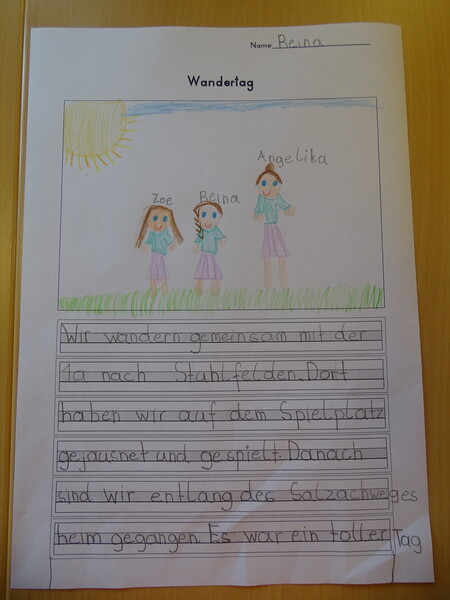 Name: Reina
Wandertag
Angelika
Zoe Reina
Wir wandern gemeinsam mit der
1a nach Stuhlfelden. Dort
haben wir auf dem Spielplatz
gejausnet und gespielt. Danach
sind wir entlang des Salzachweges
heim gegangen. Es war ein toller Tag